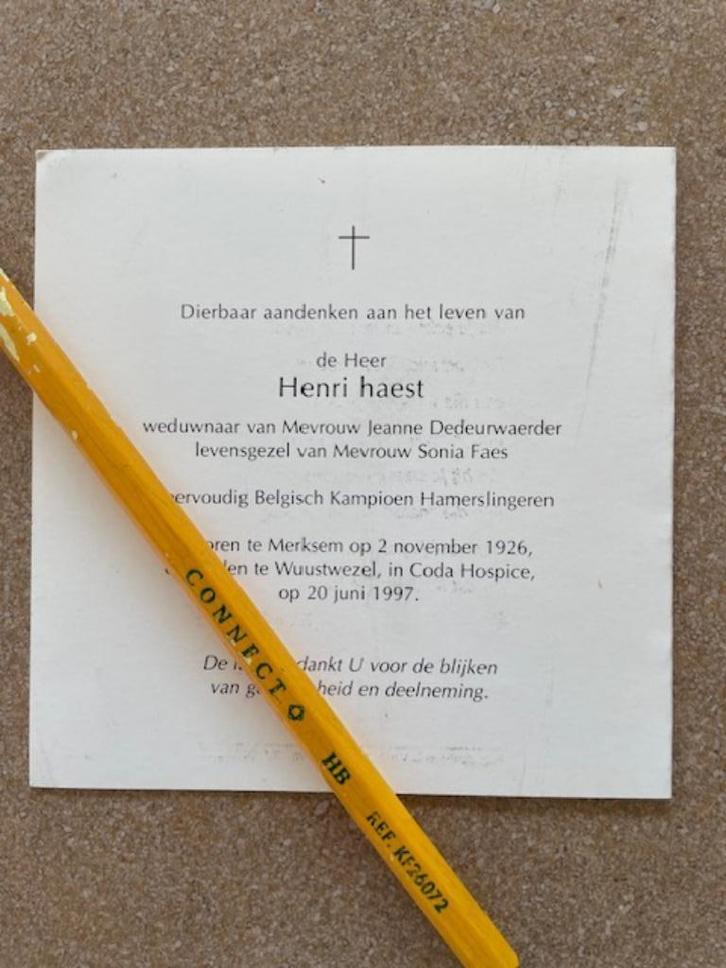 Dierbaar aandenken aan het leven van
de Heer
Henri haest
weduwnaar van Mevrouw Jeanne Dedeurwaerder
levensgezel van Mevrouw Sonia Faes
ervoudig Belgisch Kampioen Hamerslingeren
oren te Merksem op 2 november 1926,
len te Wuustwezel, in Coda Hospice,
op 20 juni 1997.
De dankt U voor de blijken
van heid en deelneming.
CONNECT HB REF. KF26072